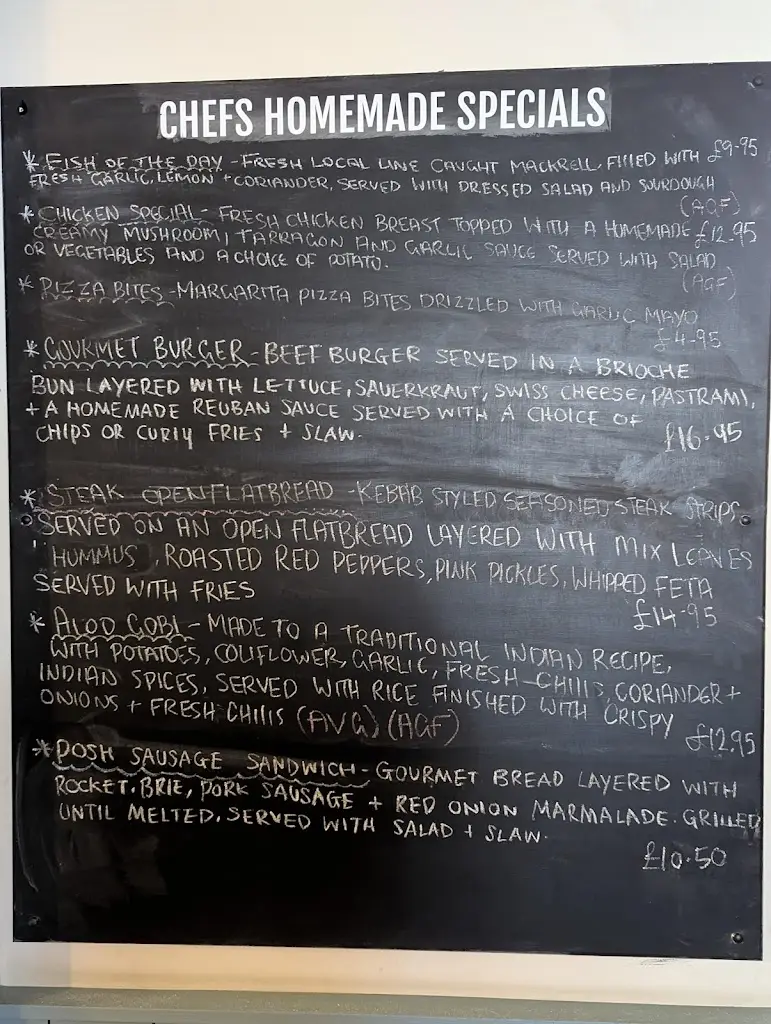 CHEFS HOMEMADE SPECIALS
* FISH OF THE DAY - FRESH LOCAL LINE CAUGHT MACKRELL. FILLED WITH £9-95
FRESH GARLIC, LEMON + CORIANDER, SERVED WITH DRESSED SALAD AND SOURDOUGH
(AGF)
* CHICKEN SPECIAL - FRESH CHICKEN BREAST TOPPED WITH A HOMEMADE £12-95
CREAMY MUSHROOM, TARRAGON AND GARLIC SAUCE SERVED WITH SALAD
OR VEGETABLES AND A CHOICE OF POTATO.
(AGF)
* PIZZA BITES - MARGARITA PIZZA BITES DRIZZLED WITH GARLIC MAYO
£4-95
* GOURMET BURGER - BEEF BURGER SERVED IN A BRIOCHE
BUN LAYERED WITH LETTUCE, SAUERKRAUT, SWISS CHEESE, PASTRAMI,
+ A HOMEMADE REUBAN SAUCE SERVED WITH A CHOICE OF
CHIPS OR CURLY FRIES + SLAW.
£16-95
* STEAK OPEN FLATBREAD - KEBAB STYLED SEASONED STEAK STRIPS
SERVED ON AN OPEN FLATBREAD LAYERED WITH MIX LEAVES
HUMMUS, ROASTED RED PEPPERS, PINK PICKLES, WHIPPED FETA
SERVED WITH FRIES
£14-95
* ALOO GOBI - MADE TO A TRADITIONAL INDIAN RECIPE,
WITH POTATOES, COLIFLOWER, GARLIC, FRESH CHILIS, CORIANDER +
INDIAN SPICES, SERVED WITH RICE FINISHED WITH CRISPY
ONIONS + FRESH CHILIS (AVG) (AGF)
£12.95
* POSH SAUSAGE SANDWICH - GOURMET BREAD LAYERED WITH
ROCKET, BRIE, PORK SAUSAGE + RED ONION MARMALADE. GRILLED
UNTIL MELTED. SERVED WITH SALAD + SLAW.
£10-50